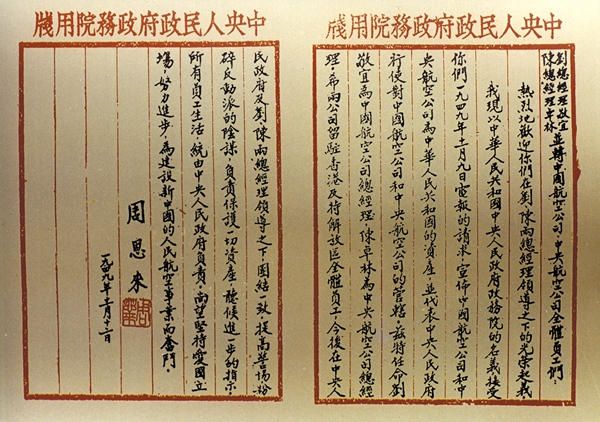 中央人民政府政務院用牋
劉總經理敬宜
陳總經理卓林
並轉中國航空公司、中央航空公司全體員工們：
熱烈地歡迎你們在劉、陳兩總經理領導之下的光榮起義。
我現以中華人民共和國中央人民政府政務院的名義，接受
你們一九四九年十一月九日電報的請求，宣佈中國航空公司和中
央航空公司為中華人民共和國的資產，並代表中央人民政府
行使對中國航空公司和中央航空公司的管轄。茲特任命劉
敬宜為中國航空公司總經理，陳卓林為中央航空公司總經
理，希兩公司留駐香港及待解放區全體員工，今後在中央人
中央人民政府政務院用牋
民政府及劉、陳兩總經理領導之下，團結一致，提高警惕，粉
碎反動派的陰謀，負責保護一切資產，聽候進一步的指示。
所有員工生活，統由中央人民政府負責，尚望堅持愛國立
場，努力進步，為建設新中國的人民航空事業而奮鬥。
周恩來
一九四九年十一月十二日